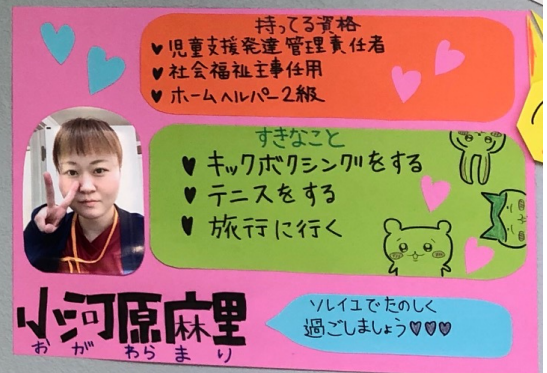 持ってる資格
♥児童支援発達管理責任者
♥社会福祉主事任用
♥ホームヘルパー2級
すきなこと
♥キックボクシングをする
♥テニスをする
♥旅行に行く
小河原麻里
おがわらまり
ソレイユでたのしく
過ごしましょう♡♡♡